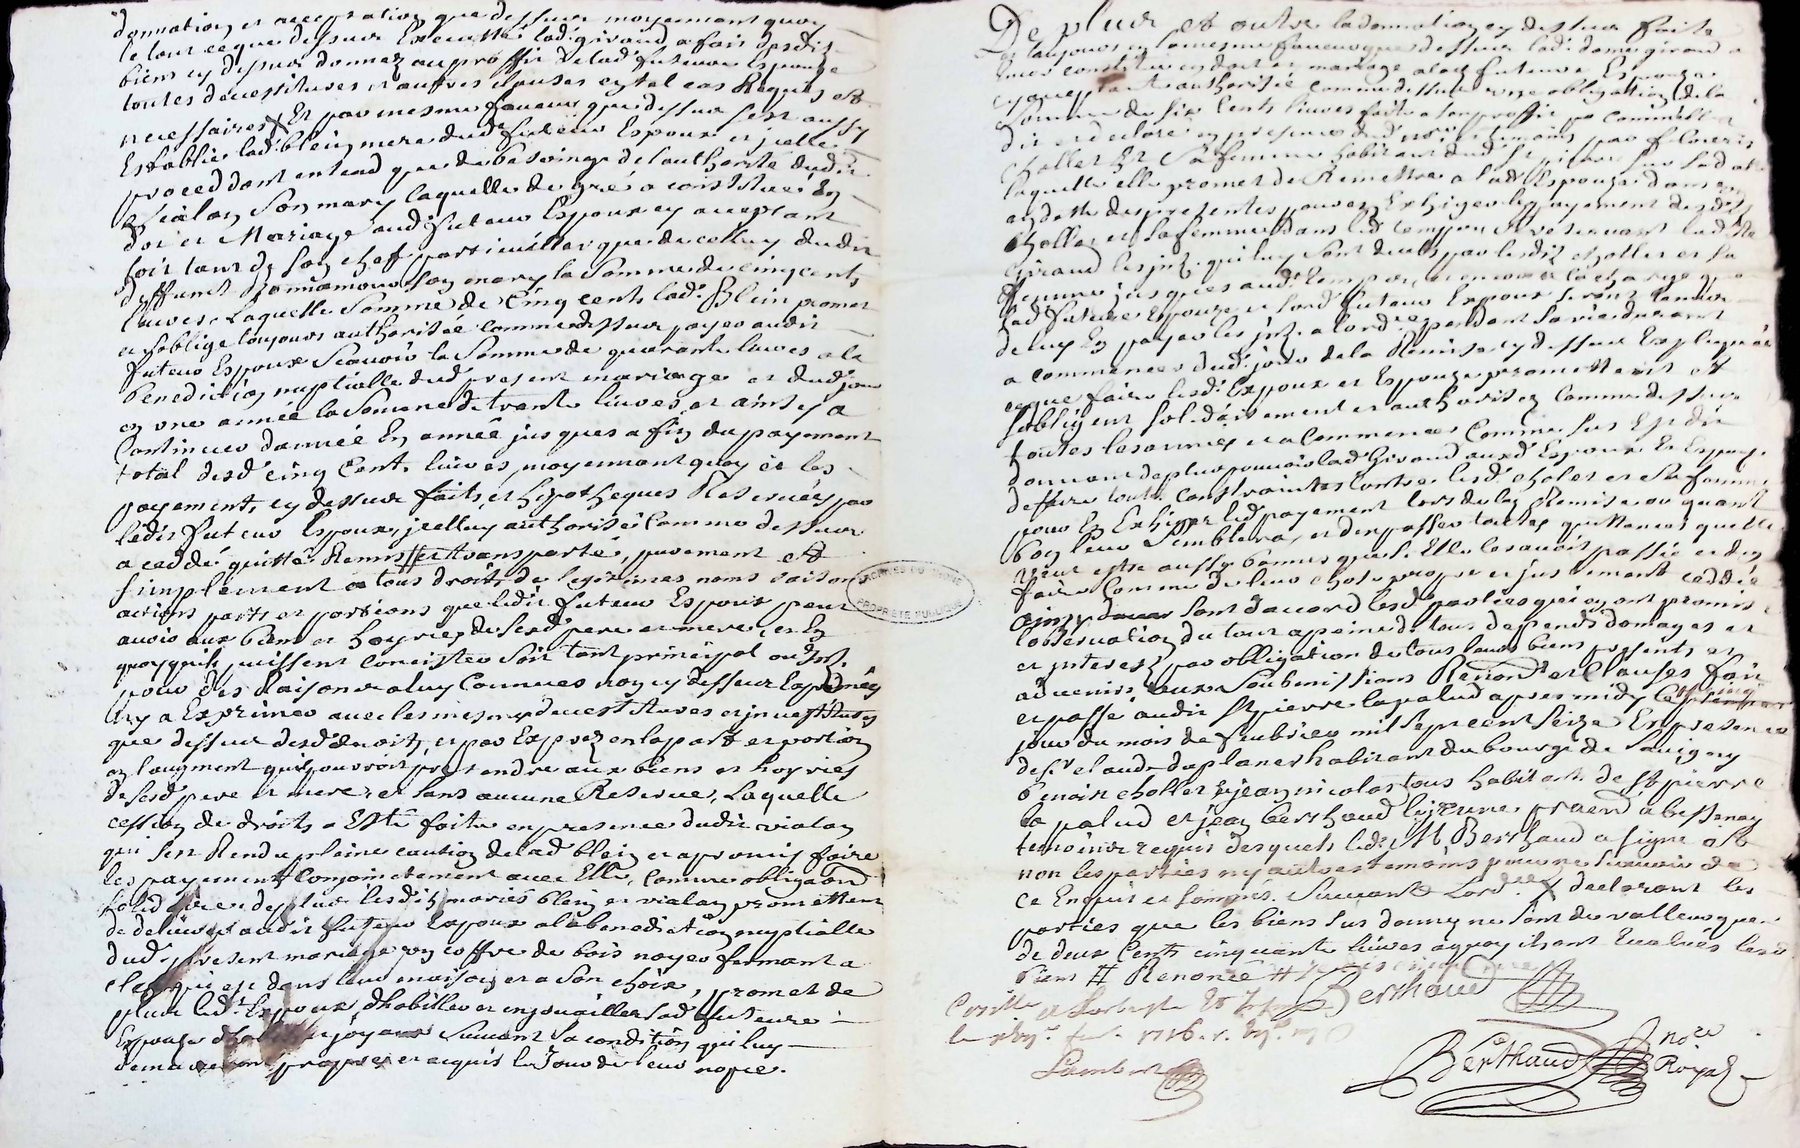 donnation et acceptation que dessus moyennant quoy
le tout ce que dessus Executté lad. giraud a fait desdits
biens cy dessus donnez au proffit de lad. future Espouze
toutes devestitures et autres clauses en tel cas Requis et
necessaires Et par mesme faveur que dessus s'est aussy
Establie lad. blein mere dud. futeur Espoux et jcelle
proceddant en tead que de besoing de l'authorité dudit
vialon son mary laquelle de gré a constitué En
dot et Mariage aud. futeur Espoux cy acceptant
soit tant de son cheff particuillier que de celluy dudit
deffunct son mary la Somme de cinq cents
livres, Laquelle Somme de Cinq cents lad. Blein promet
et s'oblige toujours authorisée comme dessus payer audit
futeur Espoux Scavoir la Somme de quarante livres a la
benediction nuptialle dud. present mariage et dud. jour
en une année la Somme de trante livres, et ainsy a
Continuer d'année En année jusques a fin du payement
total desd. cinq Cents livres, moyennant quoy et les
payements cy dessus faits, et hypotheques Reservées par
ledit futeur Espoux, jcelluy authorisé Comme dessus
a ceddé quitté Remis et transporté, purement et
simplement a tous droits de legitimes noms raisons
actions parts et portions que ledit futeur Espoux peut
avoir aux biens et hoyries de sesd. pere et mere, et En
quoy qu'ils puissent Concister soit tant principal ou Int.
pour des Raisons a luy Connues non cy dessus Exprimées
ny a Exprimer avec les mesmes devestitures et jnvestitures
que dessus desd. droits, et par Exprez en la part et portion
en l'augment qu'il pourroit pretendre aux biens et hoyries
de sesd. pere et mere et sans aucune Reserve, Laquelle
cession de droits a Esté faite en presence dudit vialon
qui s'est Rendu pleine caution de lad. blein et a promis faire
les payements Conjointement avec Elle, Comme obligation
solidaire deplus lesdits mariés blein et vialon promettent
de delivrer audit futeur Espoux a la benediction nuptialle
dud. present mariage un coffre de bois noyer fermant a
clef qui est dans leur maison et a son choix, promet de
plus led. Espoux d'habiller et enjouailler sad. future
Espouze joyaux Suivant sa condition qui luy
demeureront propres et acquis le Jour de leur nopce.
De plus et outre la donnation cy dessus faite
toujours en mesme faveur que dessus lad. dame giraud a
constitué en dot et mariage a lad. future Espouze
authorisée comme dessus une obligation de la
Somme de six Cents livres faite a son proffit
dit et declare en presence dud. no.re et temoins par
Chollet Et Sa femme habitant dud. St pierre
laquelle elle promet de Remettre a lad. Espouze dans
datte des presentes pour en Exhiger le payement desdits
Chollet et sa femme dans led. temps Se reservant lad.
Giraud les int. qui luy sont deubs par lesdits Chollet et sa
femme jusques aud. temps, et encore a la charge que
lad. future Espouze et sond. futeur Espoux seront tenus
de luy En payer les int. a l'ord.re pendant sa vie durant
a commencer dud. jour de la Remise cy dessus Expliquée
ce que faire lesd. Espoux et Espouze promettent et
s'obligent solidairement et authorisez Comme dessus
toutes les années et a Commencer Comme sus Est dit
donnant de plus pouvoir lad. Giraud auxd. Espoux Et Espouze
de ffere toutes Constraintes Contre lesd. Chollet et sa femme
pour En Exhiger led. payement lors de lad. Remise ou quant
bon leur Semblera, et d'en passer toutes quittances qu'elle
veut estre aussy bonnes que si Elle les avoit passée et d'en
faire Comme de leur chose propre et justement ceddée
Ainsy sont d'accord lesd. parties qui en ont promis
l'observation du tout a peine de tous depends domages et
et jnterest par obligation de tous leurs biens presents et
advenirs, aux Soubmissions Renond. et Clauses fait
et passé audit St pierre la palud apres midy
jour du mois de feubrier mil sept cent seize En presence
de s.r claude duplanes habitant du bourg de Savigny
benoist chollet & jean nicolas tous habitants de St pierre
la palud et jean berthaud le jeune, praend. a bessenay
temoins requis desquels led. M. Berthaud a signé et
non les parties ny autres temoins pour ne scavoir de
ce Enquis et sommés. Suivant L'ord.ce declarant les
parties que les biens sus donnez ne sont de valleur que
de deux Cents cinquante livres a quoy ils ont Evalués lesd.
biens # Renoncé #
Berthaud
1716
Lambert
Berthaud no.re
Royal
ARCHIVES DU RHONE
PROPRIETE PUBLIQUE